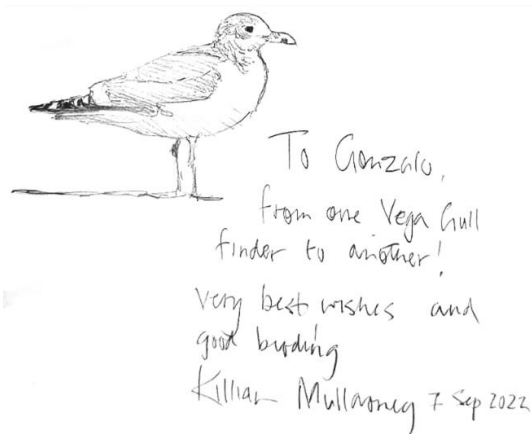 To Gonzalo,
from one Vega Gull
finder to another!
very best wishes and
good birding
Killian Mullarney 7 Sep 2022